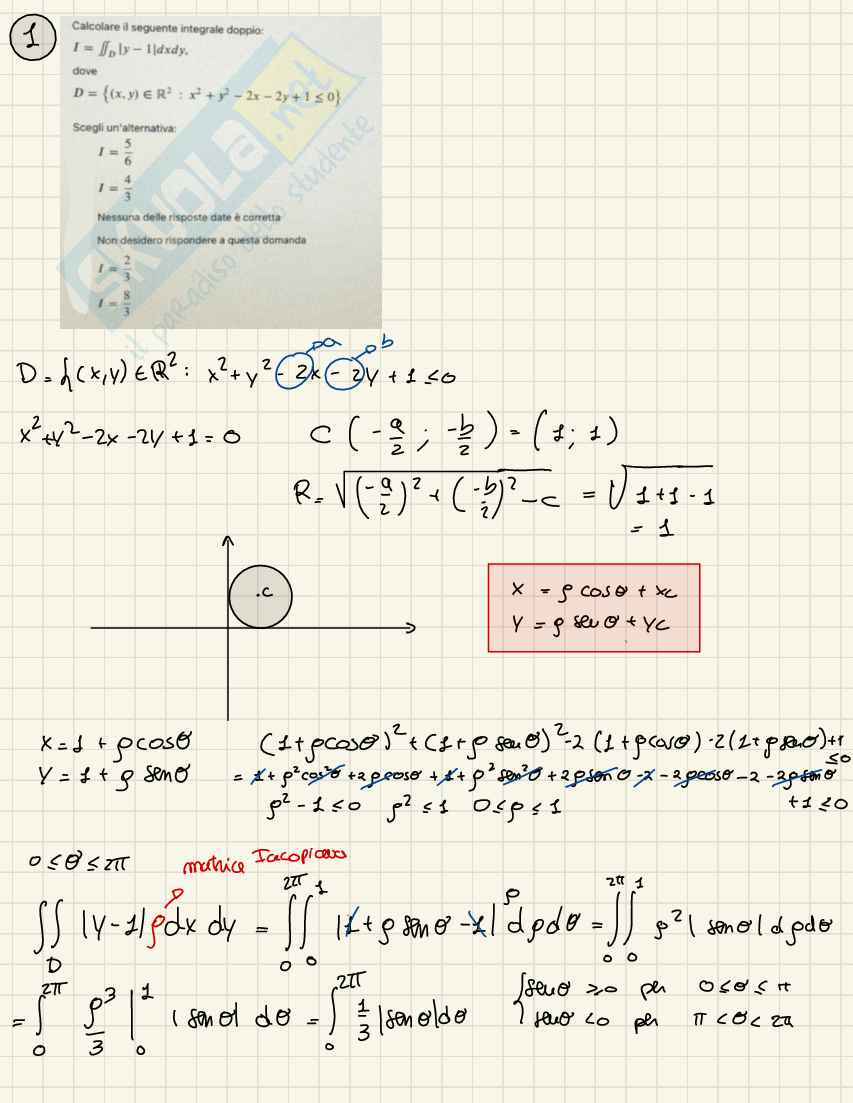 1
Calcolare il seguente integrale doppio:
I = ∬_D |y − 1|dxdy,
dove
D = {(x, y) ∈ ℝ² : x² + y² − 2x − 2y + 1 ≤ 0}
Scegli un'alternativa:
I = 5/6
I = 4/3
Nessuna delle risposte date è corretta
Non desidero rispondere a questa domanda
I = 2/3
I = 8/3
SKUOLA.net
il paradiso dello studente
a b
D = {(x,y) ∈ ℝ² : x² + y² − 2x − 2y + 1 ≤ 0
x² + y² − 2x − 2y + 1 = 0 C (−a/2 ; −b/2) = (1 ; 1)
R = √((−a/2)² + (−b/2)² − c) = √(1 + 1 − 1)
= 1
.C
x = ρ cosθ + xc
y = ρ senθ + yc
x = 1 + ρ cosθ (1 + ρ cosθ)² + (1 + ρ senθ)² − 2 (1 + ρ cosθ) − 2 (1 + ρ senθ) + 1 ≤ 0
y = 1 + ρ senθ = 1 + ρ² cos²θ + 2ρ cosθ + 1 + ρ² sen²θ + 2ρ senθ − 2 − 2ρ cosθ − 2 − 2ρ senθ + 1 ≤ 0
ρ² − 1 ≤ 0 ρ² ≤ 1 0 ≤ ρ ≤ 1
0 ≤ θ ≤ 2π
matrice Iacopiana
∬_D |y − 1| ρ dx dy = ∫_0^2π ∫_0^1 |1 + ρ senθ − 1| ρ dρ dθ = ∫_0^2π ∫_0^1 ρ² |senθ| dρ dθ
= ∫_0^2π ρ³/3 |_0^1 |senθ| dθ = ∫_0^2π 1/3 |senθ| dθ { senθ ≥ 0 per 0 ≤ θ ≤ π
senθ < 0 per π < θ < 2π